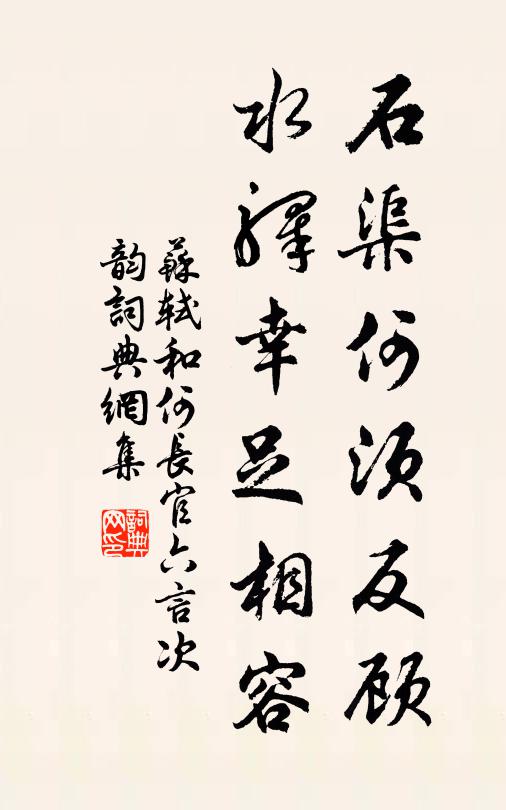 石渠何須反顧
水驛幸足相容
蘇軾和何長官六言次
韵詞典網集
詞典
网印